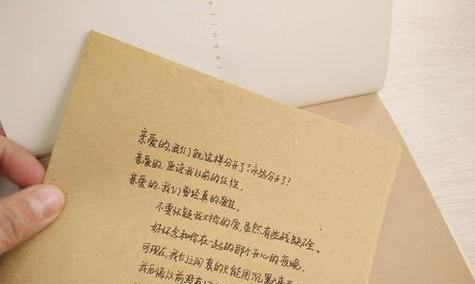 亲爱的,我们就这样分开了?永远分开了?
亲爱的,原谅我以前的任性,
亲爱的,我们曾经真的爱过,
不要怀疑我对你的爱,虽然有些残缺不全。
好怀念和你在一起的那个开心的夜晚,
可现在,我们之间真的只能用沉默来
我后悔以前没有